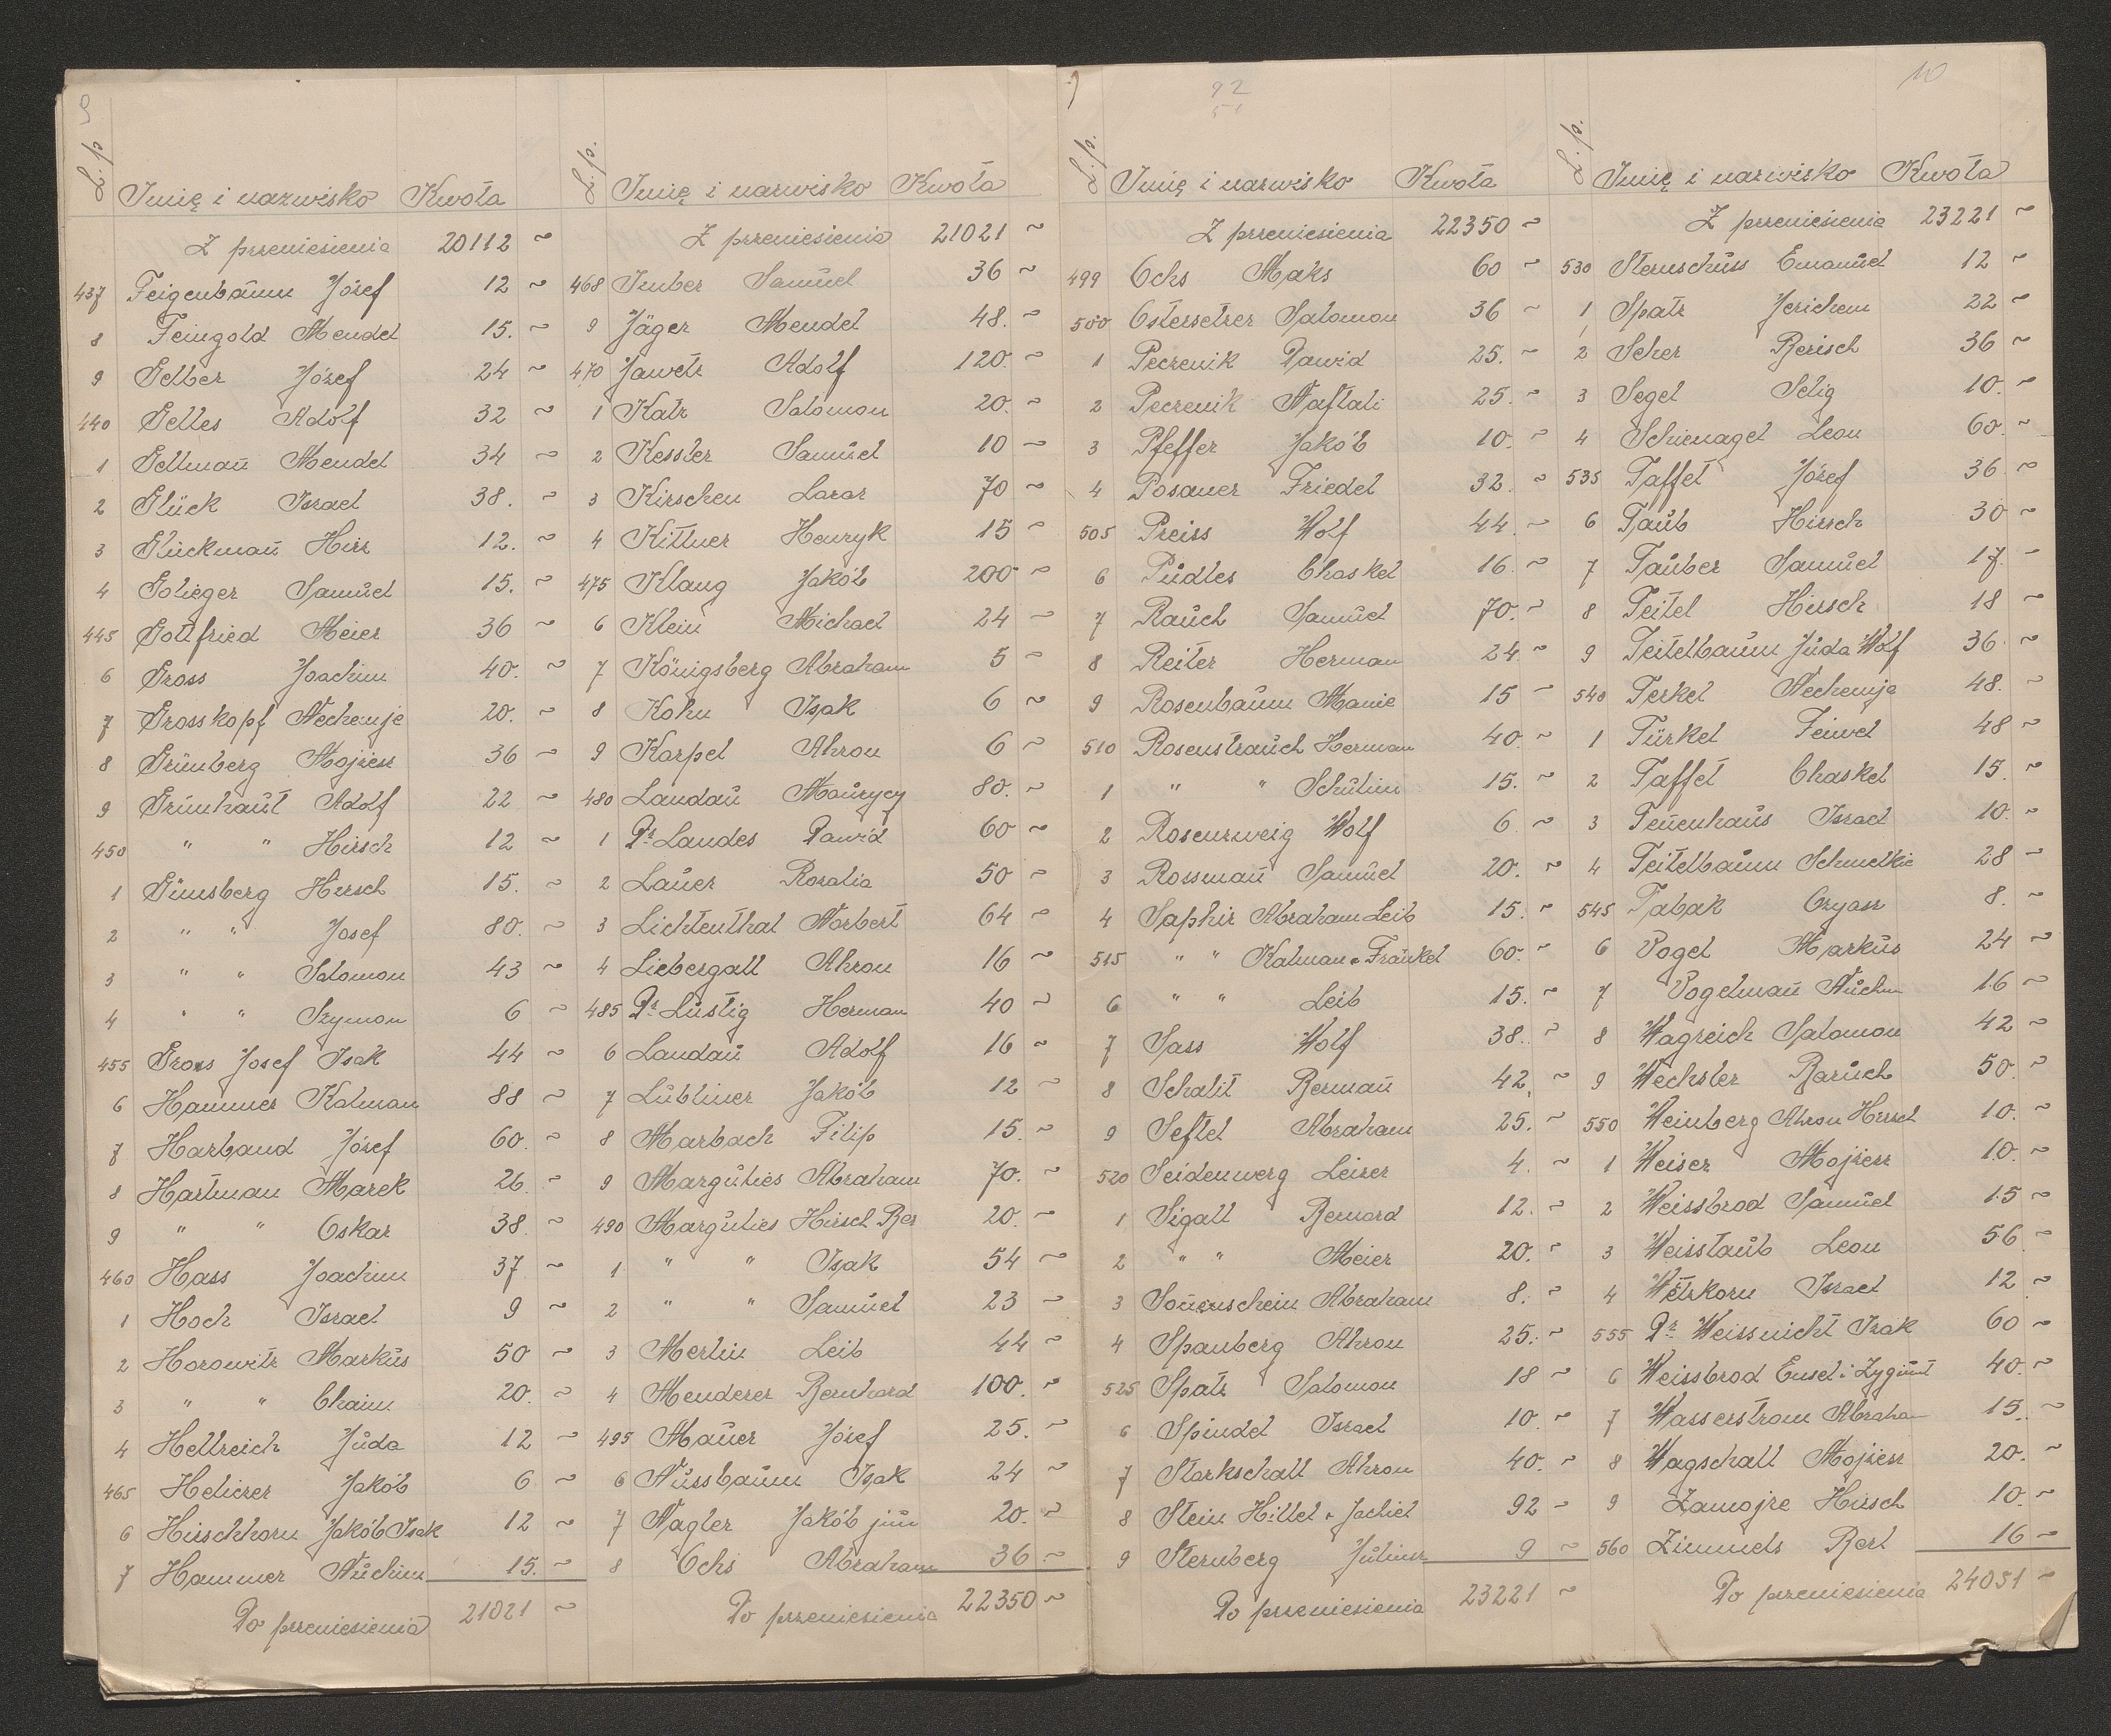 9
L.p. Imię i nazwisko Kwota
Z przeniesienia 20112 ~
437 Feigenbaum Józef 12 ~
8 Feingold Mendel 15. ~
9 Gelber Józef 24 ~
440 Gelles Adolf 32 ~
1 Gellman Mendel 34 ~
2 Glück Israel 38. ~
3 Glückman Hirz 12. ~
4 Goliger Samuel 15. ~
445 Gottfried Meier 36 ~
6 Gross Joachim 40. ~
7 Grosskopf Nechemje 20. ~
8 Grünberg Mojżesz 36 ~
9 Grünhaut Adolf 22 ~
450 " " Hirsch 12 ~
1 Günsberg Hersch 15. ~
2 " " Josef 80. ~
3 " " Salomon 43 ~
4 " " Szymon 6 ~
455 Grons Josef Isak 44 ~
6 Hammer Kalman 88 ~
7 Harband Józef 60. ~
8 Hartman Marek 26 ~
9 " " Oskar 38. ~
460 Hass Joachim 37 ~
1 Hoch Israel 9 ~
2 Horowitz Markus 50 ~
3 " " Chaim 20. ~
4 Hellreich Juda 12 ~
465 Heliczer Jakób 6 ~
6 Hirschhorn Jakób Isak 12 ~
7 Hammer Nuchim 15. ~
Do przeniesienia 21021 ~
L.p. Imię i nazwisko Kwota
Z przeniesienia 21021 ~
468 Imber Samuel 36 ~
9 Jäger Mendel 48. ~
470 Jawetz Adolf 120. ~
1 Katz Salomon 20. ~
2 Kessler Samuel 10 ~
3 Kirschen Lazar 70 ~
4 Kittner Henryk 15 ~
475 Klang Jakób 200 ~
6 Klein Michael 24 ~
7 Königsberg Abraham 5 ~
8 Kohn Isak 6 ~
9 Karpel Ahron 6 ~
480 Landau Maurycy 80. ~
1 Dr. Landes Dawid 60 ~
2 Lauer Rozalia 50 ~
3 Lichtenthal Norbert 64 ~
4 Liebergall Ahron 16 ~
485 Dr. Lustig Herman 40 ~
6 Landau Adolf 16 ~
7 Lubliner Jakób 12 ~
8 Marbach Filip 15. ~
9 Margulies Abraham 70. ~
490 Margulies Hirsch Ber 20. ~
1 " " Isak 54 ~
2 " " Samuel 23 ~
3 Merlin Leib 44 ~
4 Menderer Bernhard 100. ~
495 Mauer Józef 25. ~
6 Nussbaum Isak 24 ~
7 Nagler Jakób jun 20. ~
8 Ochs Abraham 36 ~
Do przeniesienia 22350 ~
92
L.p. Imię i nazwisko Kwota
Z przeniesienia 22350 ~
499 Ochs Maks 60 ~
500 Ostersetzer Salomon 36 ~
1 Peczenik Dawid 25. ~
2 Peczenik Naftali 25. ~
3 Pfeffer Jakób 10. ~
4 Posauer Friedel 32. ~
505 Preiss Wolf 44. ~
6 Pudles Chaskel 16. ~
7 Rauch Samuel 70. ~
8 Reiter Herman 24. ~
9 Rosenbaum Manie 15 ~
510 Rosenstrauch Herman 40. ~
1 " " Schulim 15. ~
2 Rosenzweig Wolf 6. ~
3 Rossman Samuel 20. ~
4 Saphir Abraham Leib 15. ~
515 " " Kalman & Fränkel 60. ~
6 " " Leib 15. ~
7 Sass Wolf 38. ~
8 Schalit Berman 42. ~
9 Seftel Abraham 25. ~
520 Seidenwerg Leizer 4. ~
1 Sigall Bernard 12. ~
2 " " Meier 20. ~
3 Sonenschein Abraham 8. ~
4 Spanberg Ahron 25. ~
525 Spatz Salomon 18 ~
6 Spindel Israel 10. ~
7 Starkschall Ahron 40. ~
8 Stein Hillel & Jachiel 92 ~
9 Sternberg Juliusz 9 ~
Do przeniesienia 23221 ~
10
L.p. Imię i nazwisko Kwota
Z przeniesienia 23221 ~
530 Sternschuss Emanuel 12 ~
1 Spatz Jerichem 22 ~
2 Scher Berisch 36 ~
3 Segel Selig 10. ~
4 Schienagel Leon 60. ~
535 Taffet Józef 36 ~
6 Taub Hirsch 30 ~
7 Tauber Samuel 17. ~
8 Teitel Hirsch 18 ~
9 Teitelbaum Juda Wolf 36. ~
540 Terkel Nechemja 48. ~
1 Türkel Feiwel 48 ~
2 Taffet Chaskel 15. ~
3 Tenenhaus Israel 10. ~
4 Teitelbaum Schmelkie 28 ~
545 Tabak Ozyasz 8. ~
6 Vogel Markus 24 ~
7 Vogelman Nuchm 16 ~
8 Wagreich Salomon 42 ~
9 Wechsler Baruch 50. ~
550 Weinberg Ahron Hersch 10. ~
1 Weiser Mojżesz 10. ~
2 Weissbrod Samuel 15 ~
3 Weisstaub Leon 56 ~
4 Wetzkorn Israel 12 ~
555 Dr. Weissnicht Izak 60 ~
6 Weissbrod Ensel i Zygmunt 40. ~
7 Wasserstrom Abraham 15. ~
8 Wagschall Mojżesz 20. ~
9 Zamojre Hirsch 10. ~
560 Zimmels Berl 16 ~
Do przeniesienia 24051 ~